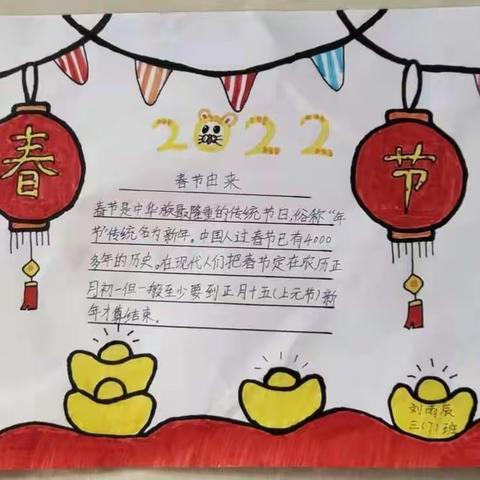 2022
春
节
春节由来
春节是中华族最隆重的传统节日,俗称“年
节”传统名为新年。中国人过春节已有4000
多年的历史。在现代人们把春节定在农历正
月初一但一般至少要到正月十五(上元节)新
年才算结束。
刘雨辰
三(7)班